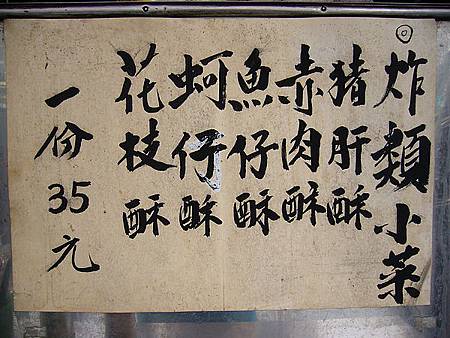 炸類小菜
猪肝酥
赤肉酥
魚仔酥
蚵仔酥
花枝酥
一份35元